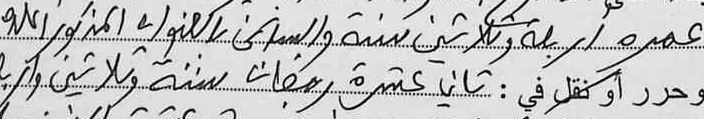 عمره أربعة وثلاثين سنة والساكن بالعنوان المذكور أعلاه
وحرر أو نقل في : ثاني عشرة رمضان سنة وثلاثين وأربـ